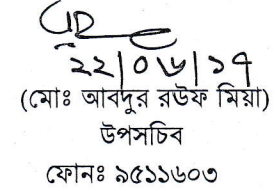 ২২/০৬/১৭
(মোঃ আবদুর রউফ মিয়া)
উপসচিব
ফোনঃ ৯৫১১৬০৩